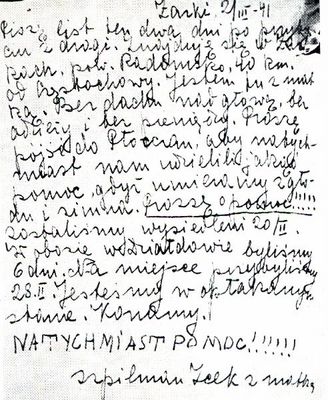 Żarki, 2/III-41
Piszę list ten dwa dni po przyby-
ciu z drogi. Znajduję się w Żar-
kach, pow. Radomsko, 40 km.
od Częstochowy. Jestem tu z mat
ką. Bez dachu nad głową, bez
odzieży i bez pieniędzy. Proszę
pójść do Płocczan, aby natych-
miast nam udzielili jakiejś
pomoc, gdyż umieramy z gło-
du i zimna. Proszę o pomoc!!!!
Zostaliśmy wysiedleni 20/II.
W obozie w Działdowie byliśmy
6 dni. Na miejsce przybyliśmy
28.II. Jesteśmy w opłakanym
stanie. Konamy.
NATYCHMIAST POMOC!!!!!!
Szpilman Icek z matką